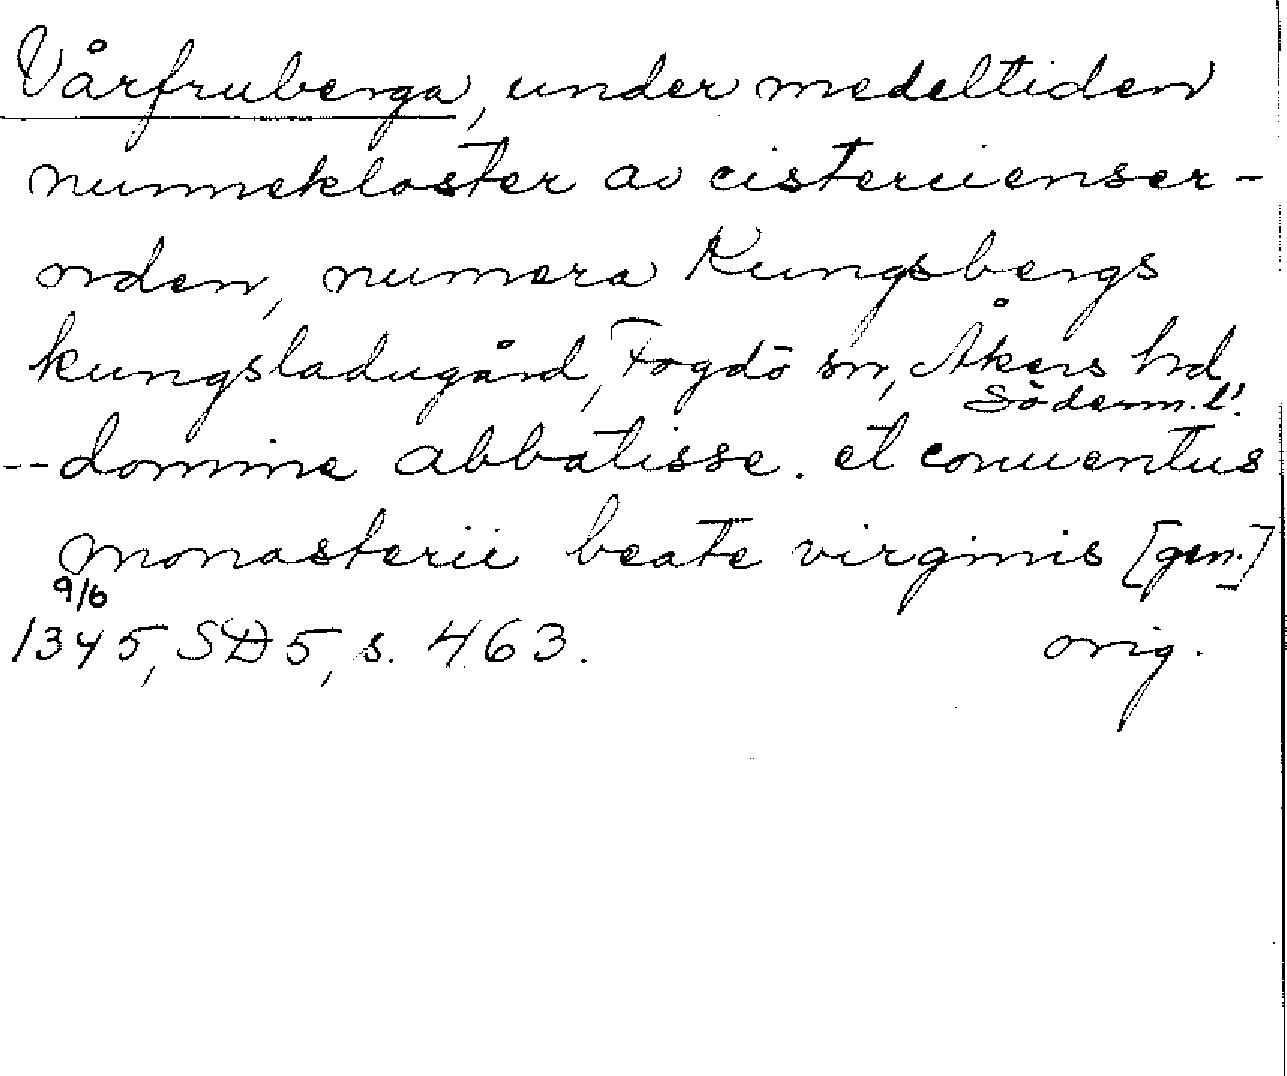 Vårfruberga, under medeltiden
nunnekloster av cistercienser-
orden, numera Kungsbergs
kungsladugård, Fogdö sn, Åkers hd,
Söderm. l.
-- domine abbatisse. et conuentus
monasterii beate virginis [gen.]
9/6
1345, SD 5, s. 463. orig.